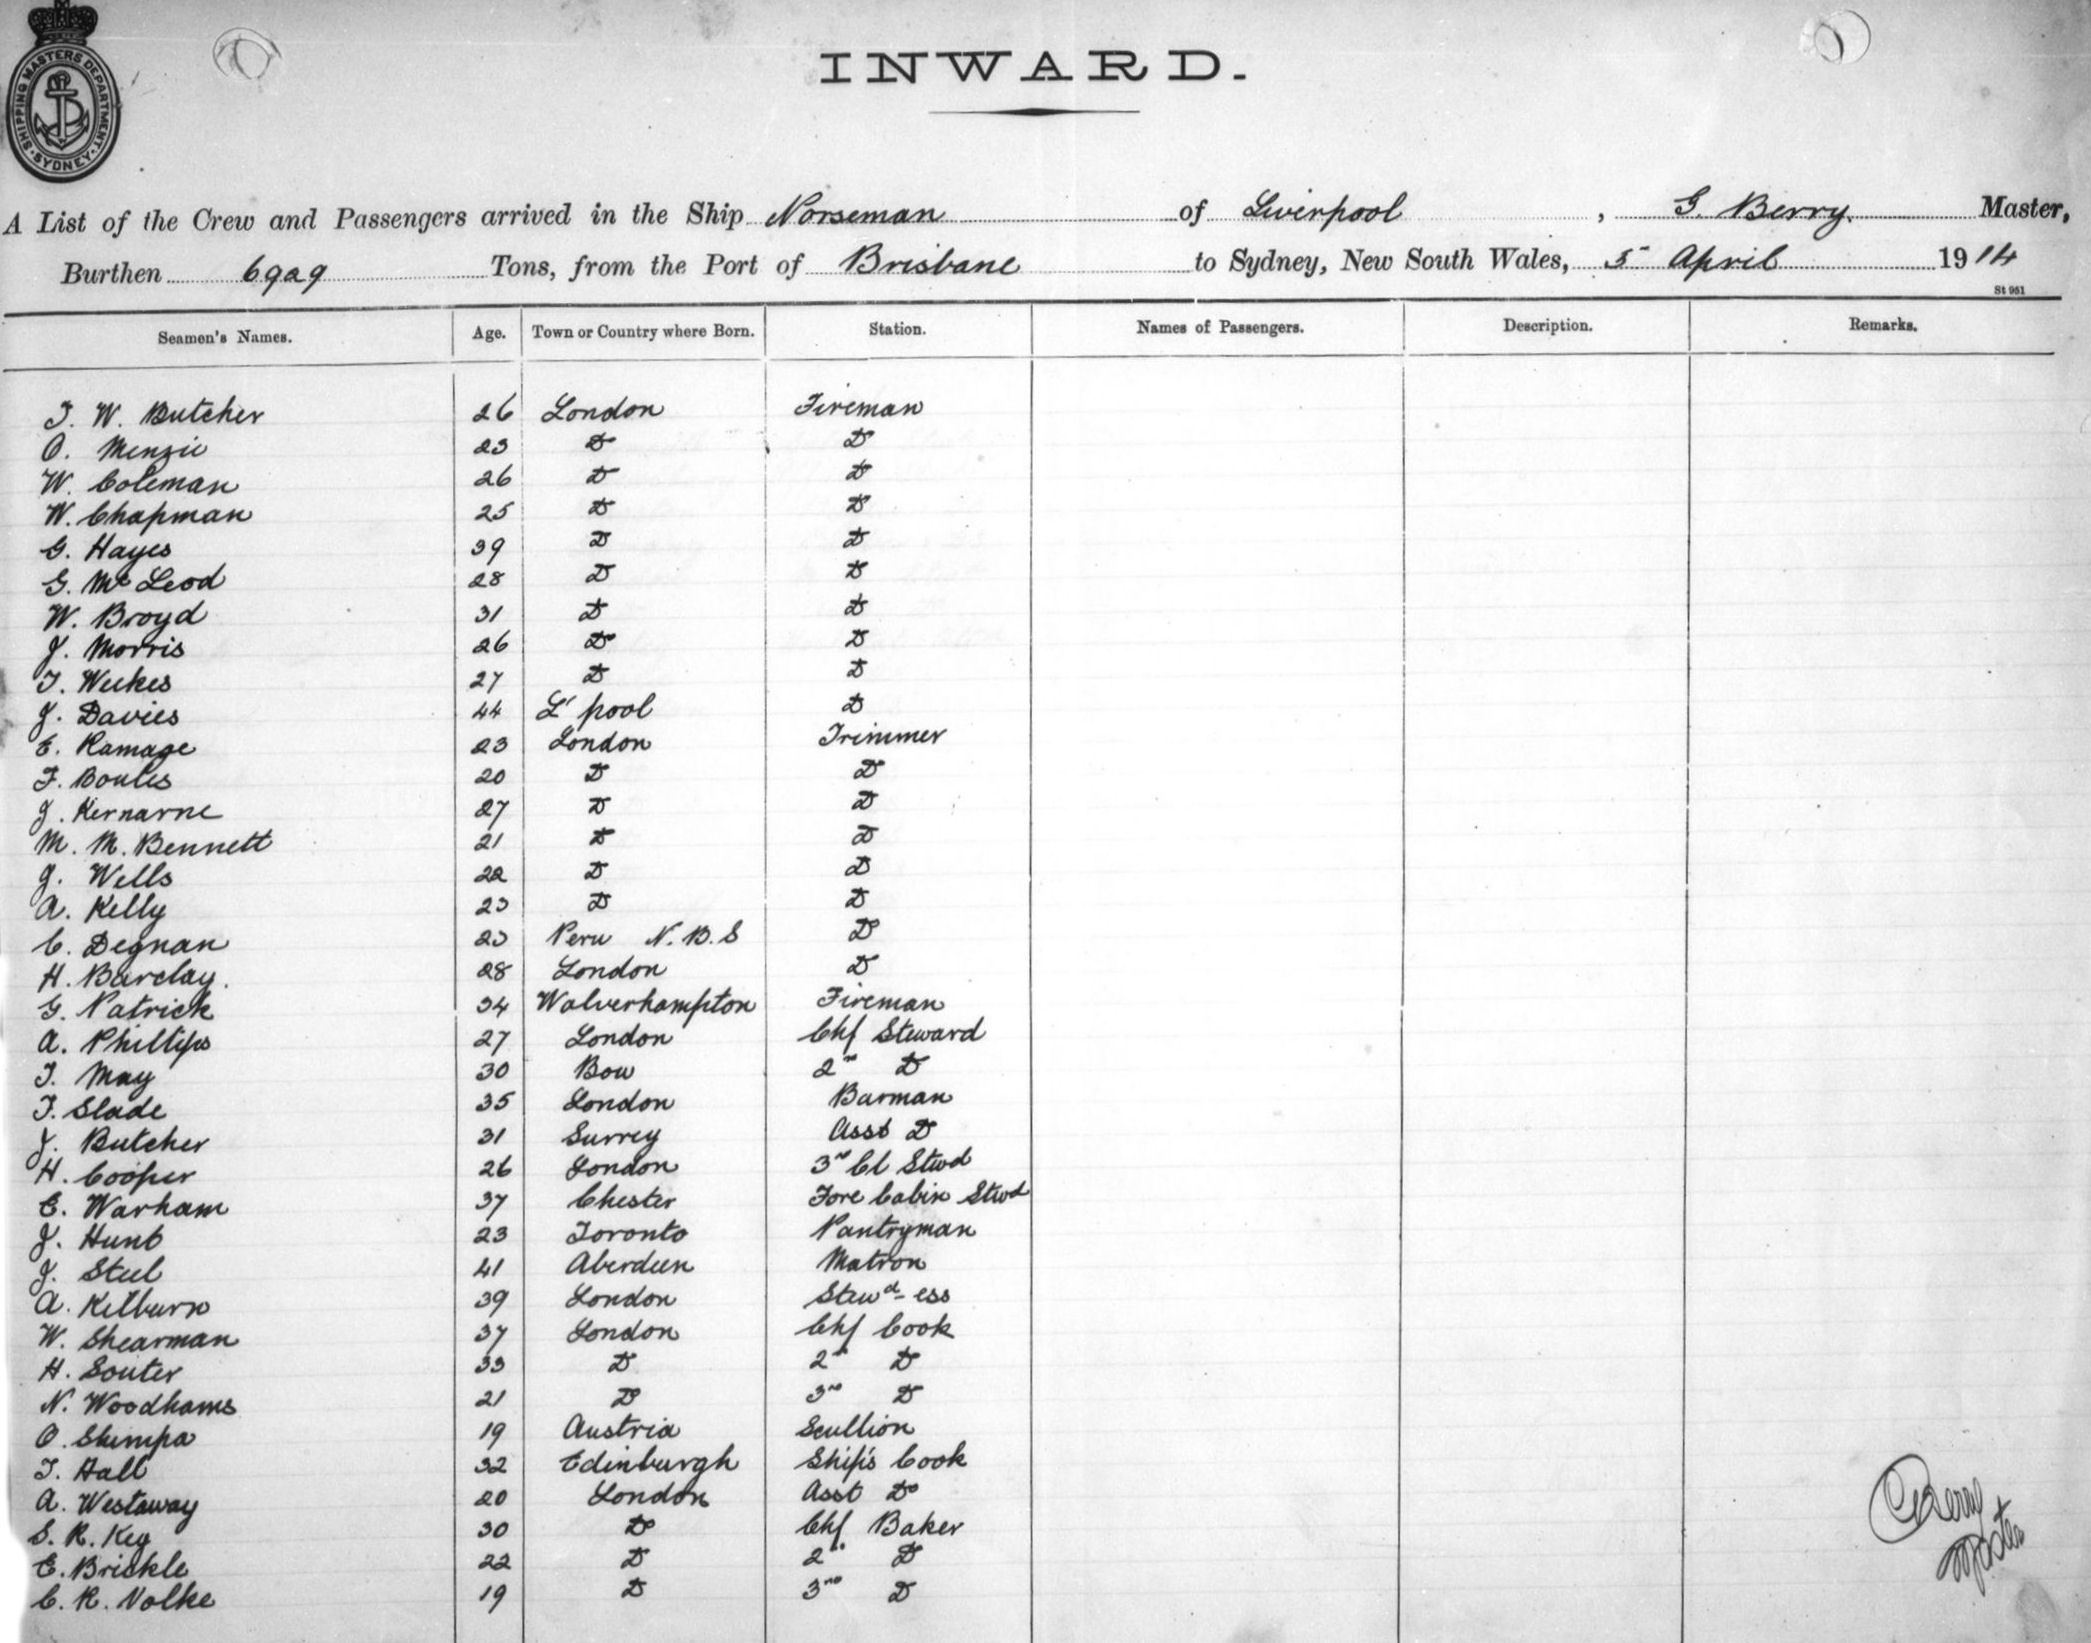 SHIPPING MASTERS DEPARTMENT. SYDNEY
INWARD.
A List of the Crew and Passengers arrived in the Ship Norseman of Liverpool, G. Berry. Master,
Burthen 6929 Tons, from the Port of Brisbane to Sydney, New South Wales, 5" April 1914
St 961
Seamen's Names. Age. Town or Country where Born. Station. Names of Passengers. Description. Remarks.
T. W. Butcher 26 London Fireman
O. Menzie 23 Do Do
W. Coleman 26 Do Do
W. Chapman 25 Do Do
G. Hayes 39 Do Do
G. McLeod 28 Do Do
W. Broyd 31 Do Do
J. Morris 26 Do Do
T. Weekes 27 Do Do
J. Davies 44 L'pool Do
E. Ramage 23 London Trimmer
F. Boules 20 Do Do
J. Kernarne 27 Do Do
M. M. Bennett 21 Do Do
J. Wells 22 Do Do
A. Kelly 23 Do Do
C. Degnan 23 Peru N.B.S Do
H. Barclay. 28 London Do
G. Patrick 34 Wolverhampton Fireman
A. Phillips 27 London Chf Steward
T. May 30 Bow 2nd Do
F. Slade 35 London Barman
J. Butcher 31 Surrey Asst Do
H. Cooper 26 London 3rd Cl Stwd
E. Warham 37 Chester Fore Cabin Stwd
J. Hunt 23 Toronto Pantryman
J. Steel 41 Aberdeen Matron
A. Kilburn 39 London Stewd-ess
W. Shearman 37 London Chf Cook
H. Souter 33 Do 2nd Do
N. Woodhams 21 Do 3rd Do
O. Skumpa 19 Austria Scullion
T. Hall 32 Edinburgh Ship's Cook
A. Westaway 20 London Asst Do
S. R. Key 30 Do Chf Baker
E. Brickle 22 Do 2nd Do
C. R. Nolke 19 Do 3rd Do
GBerry
Master